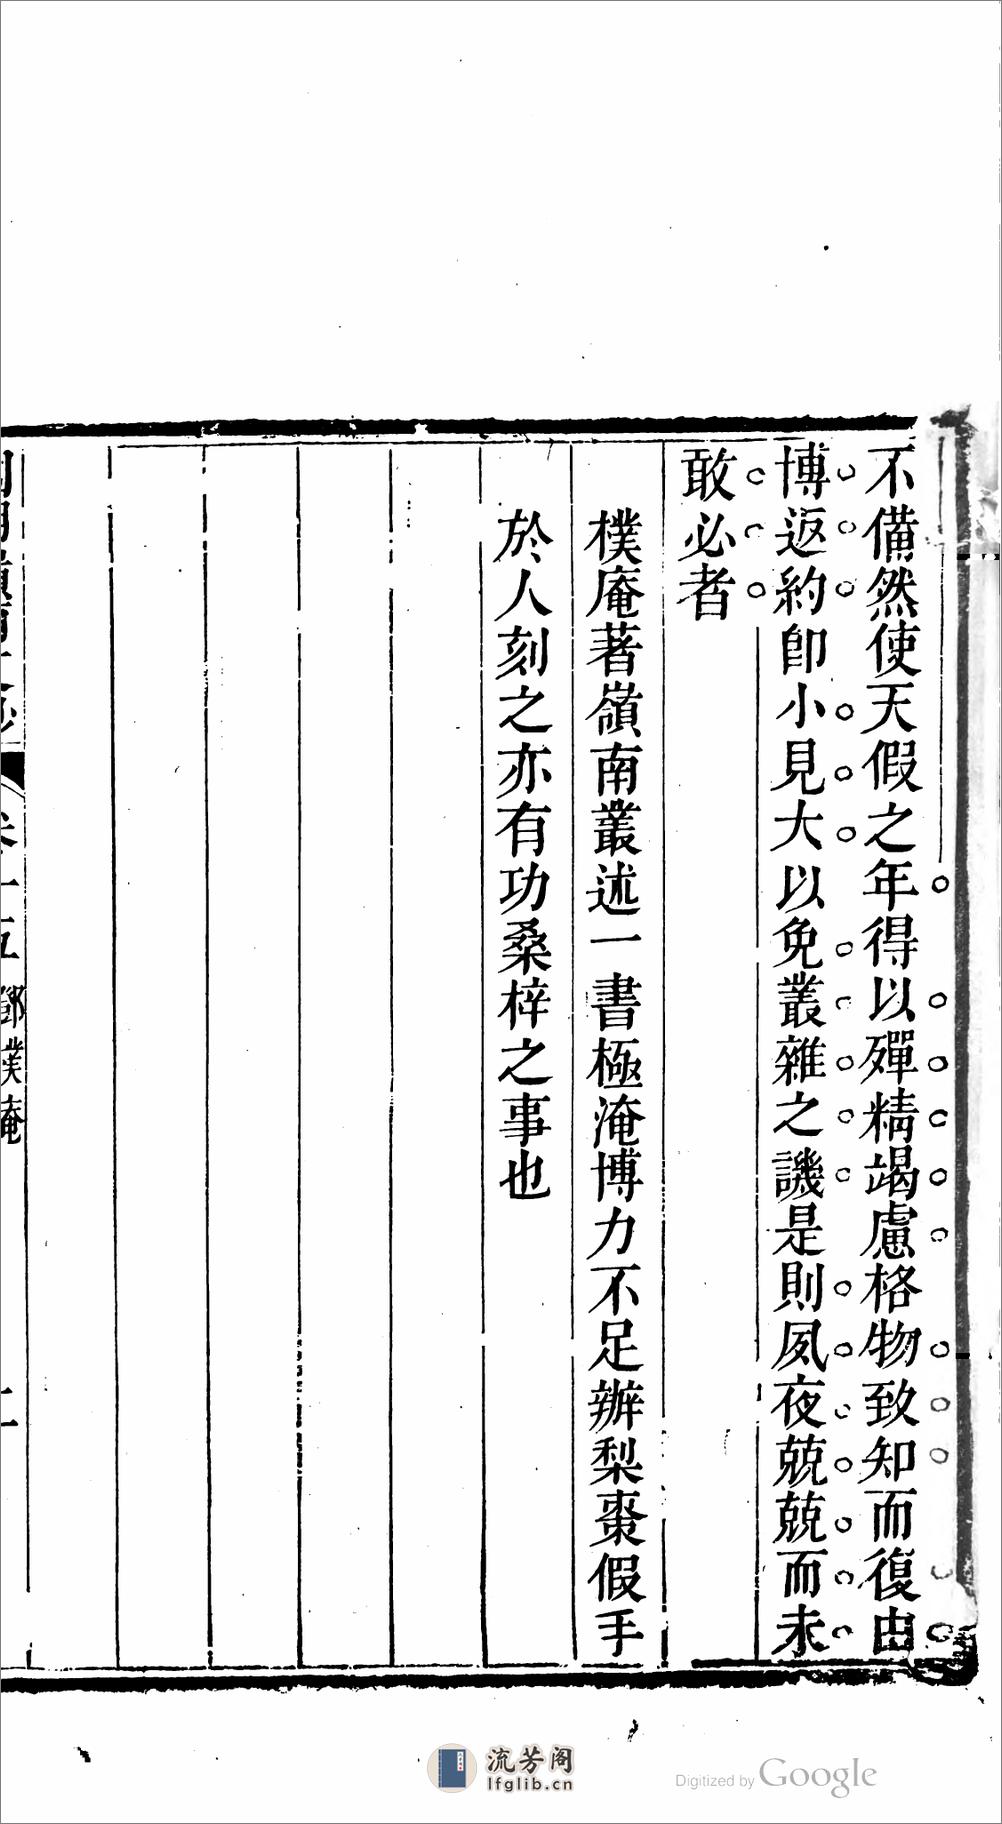 不備然使天假之年得以殫精竭慮格物致知而復由
博返約卽小見大以免叢雜之譏是則夙夜兢兢而未
敢必者
樸庵著嶺南叢述一書極淹博力不足辦梨棗假手
於人刻之亦有功桑梓之事也
卷十五 鄧樸庵
流芳阁
lfglib.cn
Digitized by Google